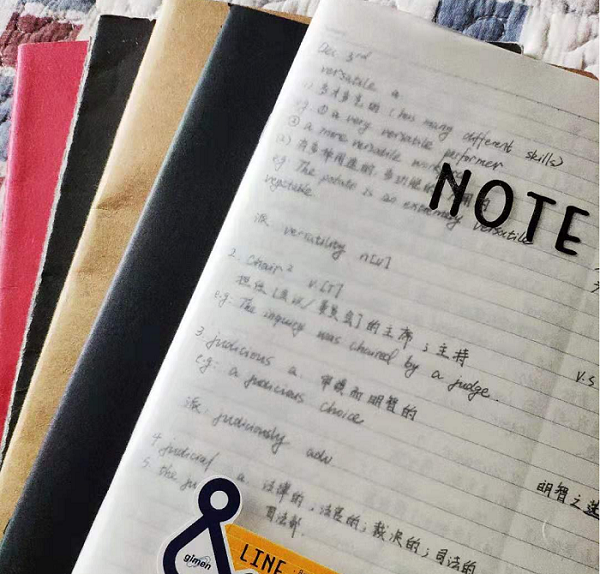 Dec 3rd
versatile a
多才多艺的 (has many different skills)
e.g. ① a very versatile performer
② a more versatile
(2) 有多种用途的, 多功能的
e.g. The potato is an extremely versatile
vegetable
NOTE
派. versatility n[U]
2. chair² v.[T]
担任 [会议/委员会] 的主席; 主持
e.g: The inquiry was chaired by a judge.
v.s
3. judicious a. 审慎而明智的
e.g: a judicious choice
派. judiciously adv
明智之选
4. judicial a 法律的, 法庭的; 裁决的; 司法的
5. the
司法部.
gimen
LINE